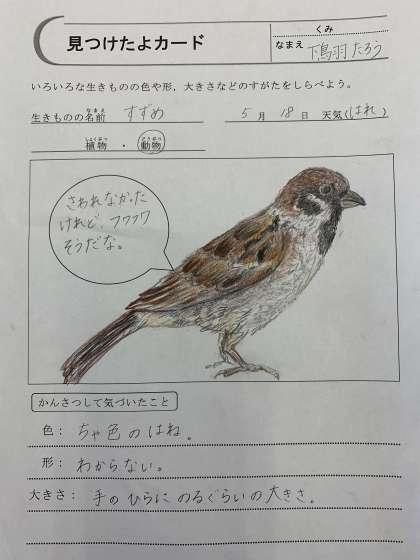 見つけたよカード
くみ
なまえ 下鳥羽たろう
いろいろな生きものの色や形，大きさなどのすがたをしらべよう。
生きものの名前 すずめ 5月18日 天気（はれ）
植物・動物
さわれなかった
けれど、フワフワ
そうだな。
かんさつして気づいたこと
色：ちゃ色のはね。
形：わからない。
大きさ：手のひらにのるぐらいの大きさ。